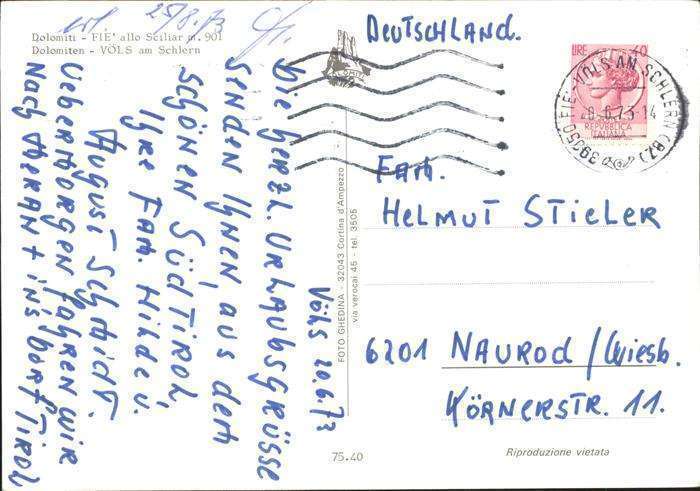 Dolomiti - FIE' allo Sciliar m. 901
Dolomiten - VÖLS am Schlern
25/8.73
Völs 20.6.73
Die herzl. Urlaubsgrüsse
senden Ihnen aus dem
schönen Südtirol,
Ihre Fam. Hilde u.
August Schmidt.
Uebermorgen fahren wir
nach Meran + ins Dorf Tirol
FOTO GHEDINA - 32043 Cortina d'Ampezzo
via verocai 45 - tel. 3505
75.40
Deutschland.
LIRE 40
REPUBBLICA
ITALIANA
39050 FIE' VÖLS AN SCHLERN (BZ)
Fam.
Helmut Stieler
6201 Naurod/Wiesb.
Körnerstr. 11.
Riproduzione vietata